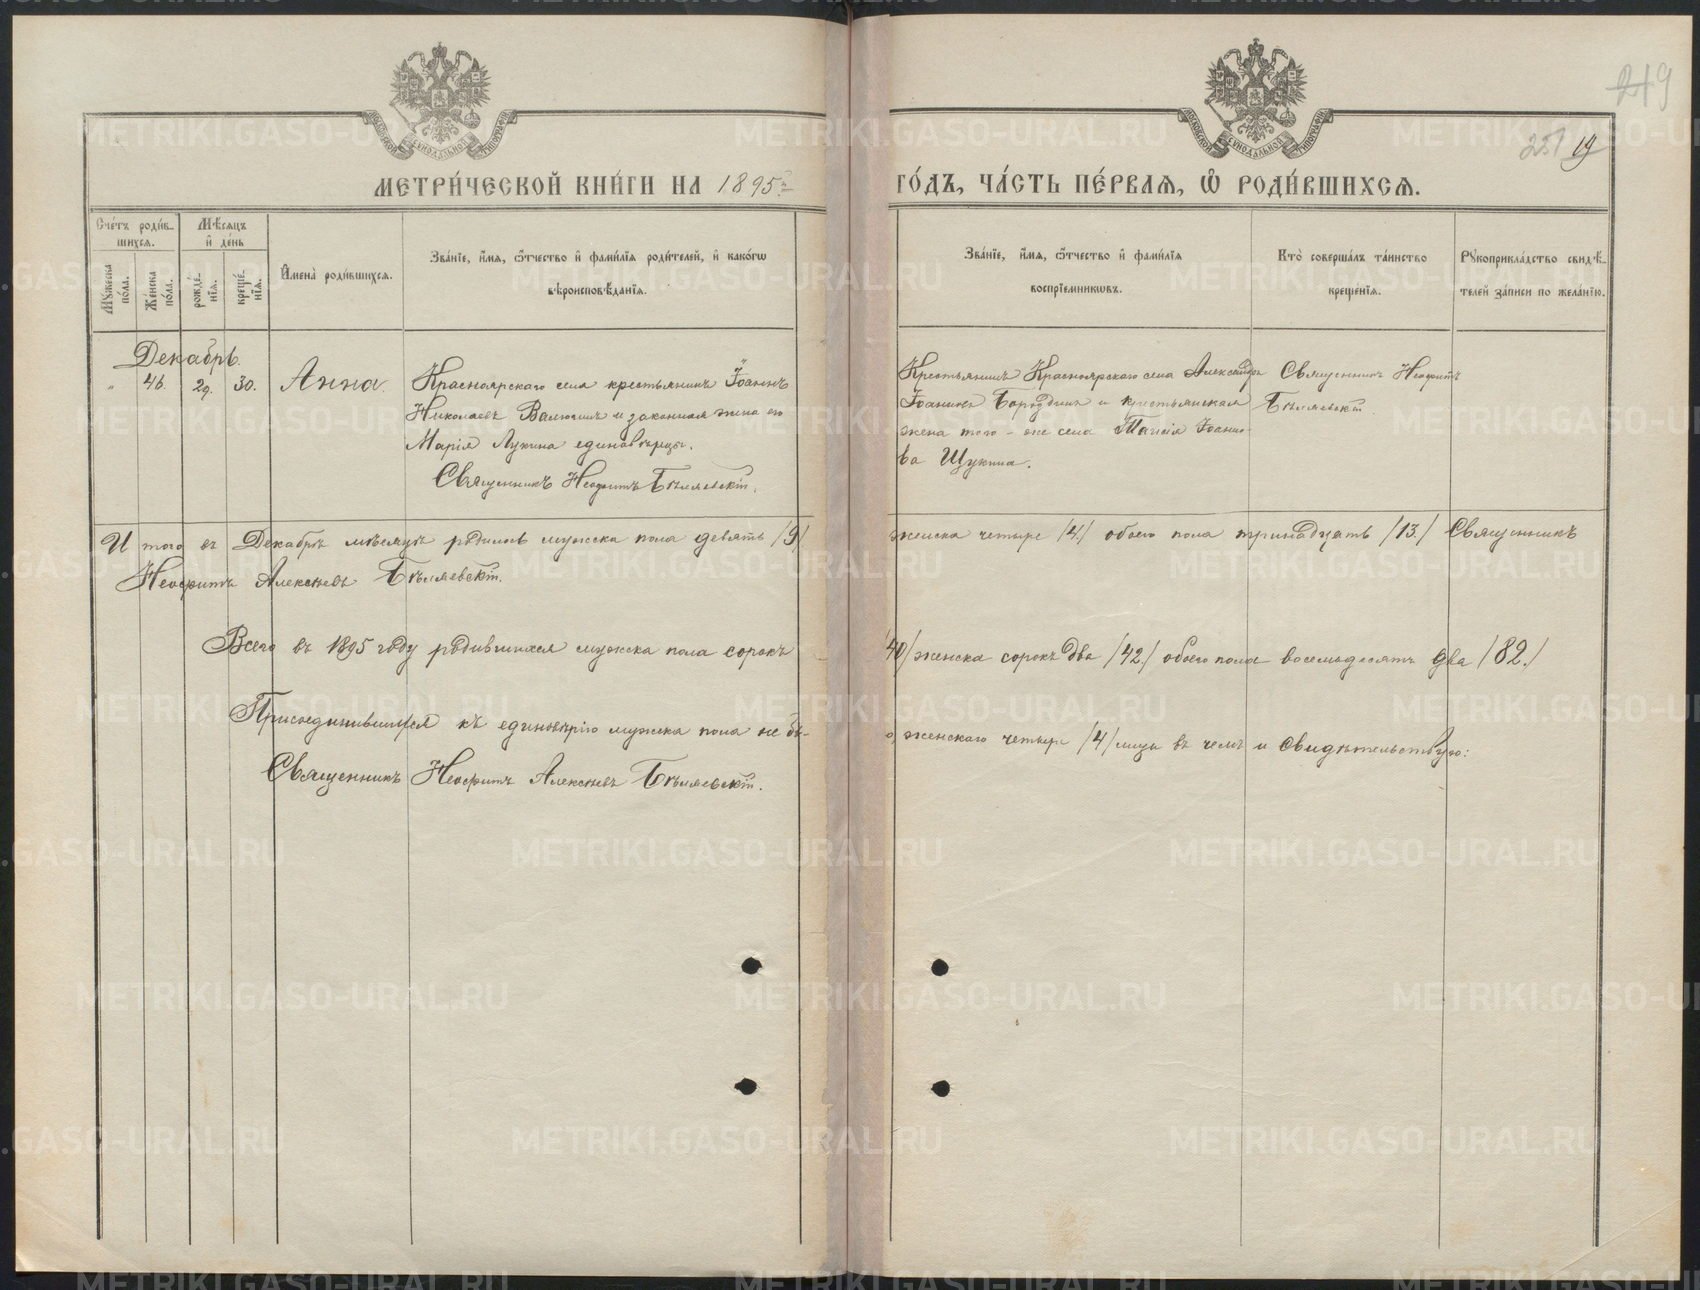 249
251 19
МЕТРИ́ЧЕСКОЙ КНИ́ГИ НА 1895 й
ГО́ДЪ, ЧА́СТЬ ПЕ́РВАЯ, Ѡ҆ РОДИ́ВШИХСЯ.
Сче́тъ роди́в-
шихся.
Мѣ́сяцъ
и҆ де́нь
Му́жеска
по́ла.
Же́нска
по́ла.
рожде́-
нїя.
креще́-
нїя.
И҆мена̀ роди́вшихся.
Зва́нїе, и҆́мя, ѻ҆́тчество и҆ фами́лїя роди́телей, и҆ како́гѡ
вѣроисповѣ́данїя.
Зва́нїе, и҆́мя, ѻ҆́тчество и҆ фами́лїя
воспрїе́мникѡвъ.
Кто̀ соверша́лъ та́инство
креще́нїя.
Рꙋкоприкла́дство свидѣ́-
телей за́писи по жела́нїю.
Декабрь.
" 46. 29. 30. Анна.
Красноярскаго села крестьянинъ Іоаннъ
Николаевъ Валюгинъ и законная жена его
Марія Лукина единовѣрцы.
Священникъ Неофитъ Бѣляевскій.
Крестьянинъ Красноярскаго села Александръ
Іоанновъ Бородинъ и крестьянская
жена того-же села Таисія Іоанно-
ва Щукина.
Священникъ Неофитъ
Бѣляевскій.
Итого въ Декабрѣ мѣсяцѣ родилось мужска пола девять /9/ женска четыре /4/ обоего пола тринадцать /13./ Священникъ
Неофитъ Алексѣевъ Бѣляевскій.
Всего въ 1895 году родившихся мужска пола сорокъ /40/ женска сорокъ два /42/ обоего пола восемьдесятъ два /82./
Присоединившихся къ единовѣрію мужска пола не бы-
о, женскаго четыре /4/ лица въ чемъ и свидѣтельствую:
Священникъ Неофитъ Алексѣевъ Бѣляевскій.